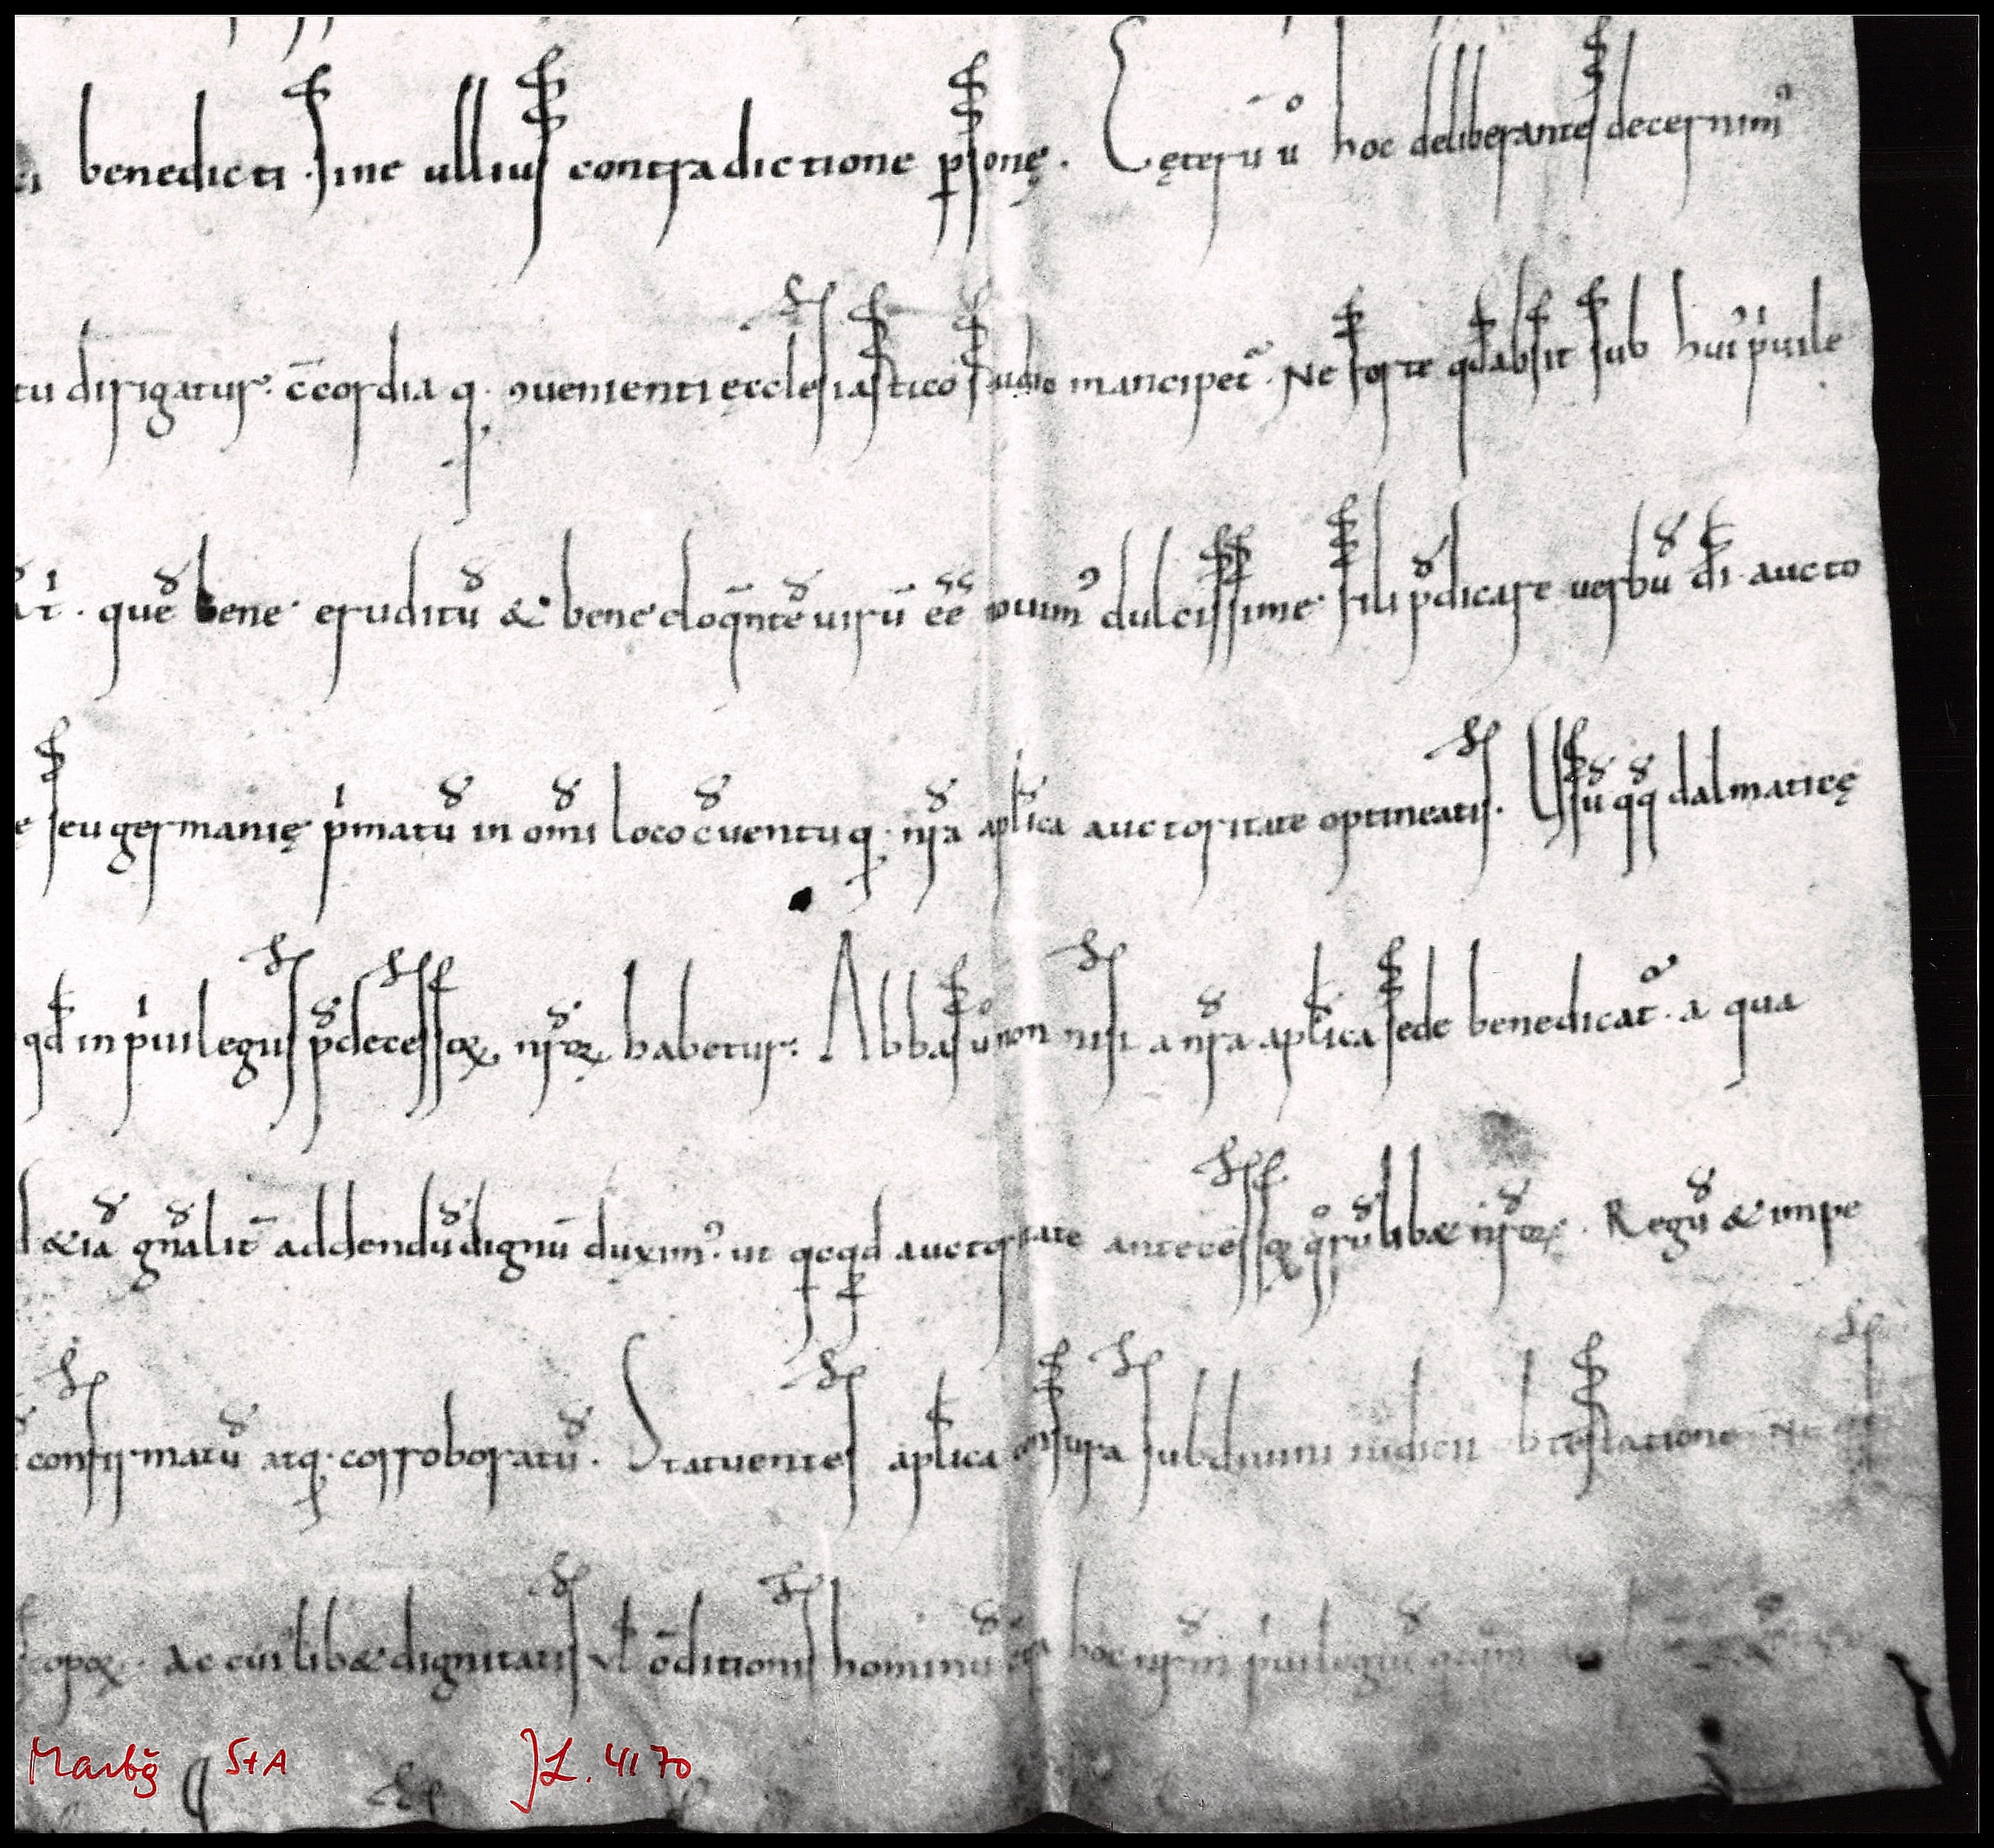 benedicti. sine ullius contradictione psonę. Cęterū ů hoc deliberantes decernim᾽
tu dirigatur. c̄cordia q. ꝯuenienti ęcclesiastico studio mancipet̃. Ne forte qd absit sub hui᾽ pͥuile
quē bene eruditū & bene eloq̄ntē uirū ēē nouim᾽ dulcissime fili p̄dicare uerbū dī aucto
seu germanię pͥmatū in om̄i loco c̄uentu q. nr̄a apl̄ica auctoritate optineatis. Usū q̄q̄ dalmaticę
qd̄ in pͥuilegiis p̄decessoꝝ nr̄oꝝ habetur. Abbas ů non nisi a nr̄a apl̄ica sede benedicat̃. a qua
& iā gn̄alit̄ addendū dignū duxim᾽. ut qcqd auctoritate antecessoꝝ qͦrūlib& nr̄oꝝ. Regū & impe
confirmatū atq. corroboratū. Statuentes apl̄ica censura sub diuini iudicii obtestatione
epoꝝ. Ac cui᾽lib& dignitatis ul̄ c̄ditionis hominū hoc nr̄m pͥuilegiū
Marbg StA JL. 4170